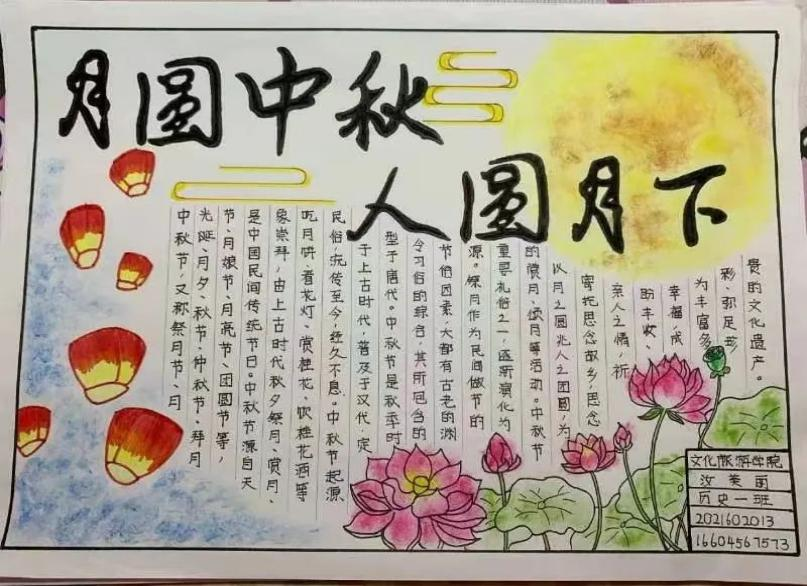 月圆中秋
人圆月下
中秋节，又称祭月节、月
光诞、月夕、秋节、仲秋节、拜月
节、月娘节、月亮节、团圆节等，
是中国民间传统节日。中秋节源自天
象崇拜，由上古时代秋夕祭月、赏月、
吃月饼、看花灯、赏桂花、饮桂花酒等
民俗，流传至今，经久不息。中秋节起源
于上古时代，普及于汉代，定
型于唐代。中秋节是秋季时
令习俗的综合，其所包含的
节俗因素，大都有古老的渊
源。祭月作为民间做节的
重要礼俗之一，逐渐演化为
的赏月、颂月等活动。中秋节
以月之圆兆人之团圆，为
寄托思念故乡，思念
亲人之情，祈
盼丰收、
幸福，成
为丰富多
彩、弥足珍
贵的文化遗产。
文化旅游学院
历史一班
2021602013
16604567573